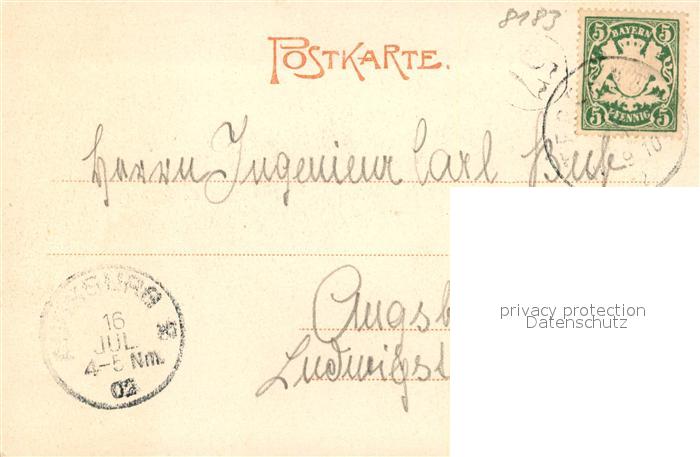 8183
POSTKARTE.
5 BAYERN 5
5 PFENNIG 5
Herrn Ingenieur Carl
AUGSBURG
16
JUL.
4-5 Nm.
02
Augsb
Ludwigst
privacy protection
Datenschutz